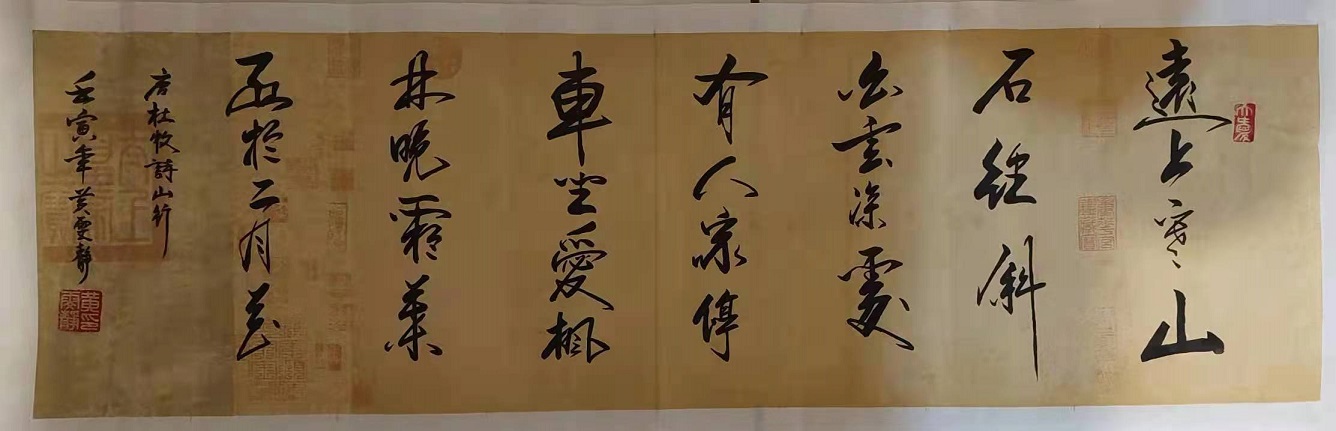 遠上寒山
石徑斜
白雲深處
有人家停
車坐愛楓
林晚霜葉
紅於二月花
唐杜牧詩山行
壬寅年黄雯靜